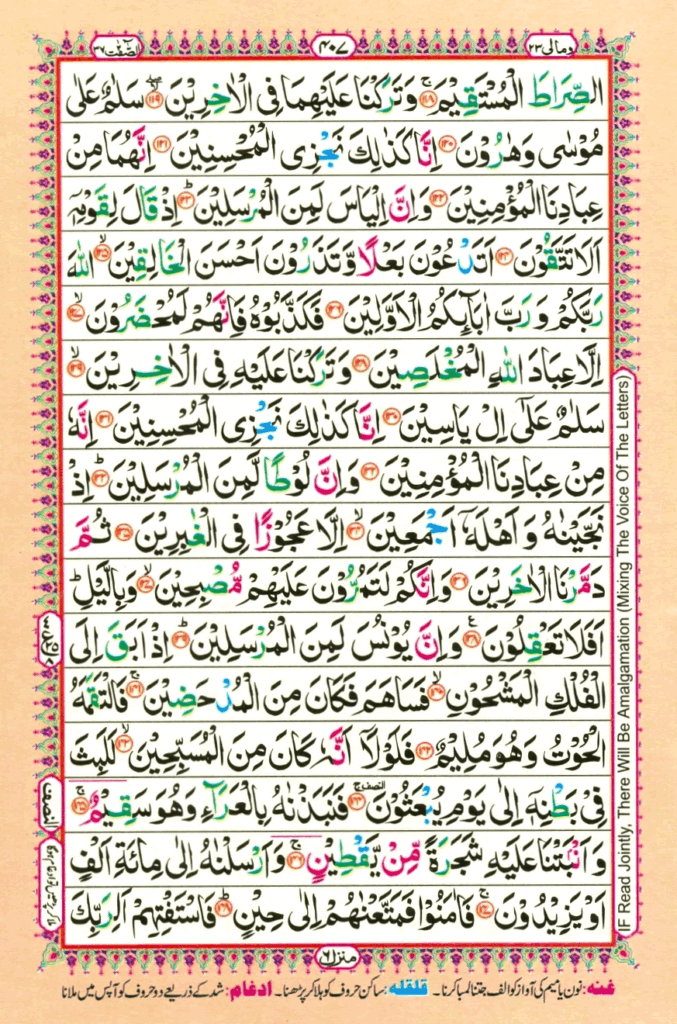 ومالى ٢٣ ٤٠٧ الصّٰفّٰت ٣٧
الصِّرَاطَ الْمُسْتَقِيْمَ ﴿۱۱۸﴾ وَتَرَكْنَا عَلَيْهِمَا فِى الْاٰخِرِيْنَ ﴿۱۱۹﴾ سَلٰمٌ عَلٰى
مُوْسٰى وَهٰرُوْنَ ﴿۱۲۰﴾ اِنَّا كَذٰلِكَ نَجْزِى الْمُحْسِنِيْنَ ﴿۱۲۱﴾ اِنَّهُمَا مِنْ
عِبَادِنَا الْمُؤْمِنِيْنَ ﴿۱۲۲﴾ وَاِنَّ اِلْيَاسَ لَمِنَ الْمُرْسَلِيْنَ ﴿۱۲۳﴾ اِذْ قَالَ لِقَوْمِهٖٓ
اَلَا تَتَّقُوْنَ ﴿۱۲۴﴾ اَتَدْعُوْنَ بَعْلًا وَّتَذَرُوْنَ اَحْسَنَ الْخَالِقِيْنَ ﴿۱۲۵﴾ اللّٰهَ
رَبَّكُمْ وَرَبَّ اٰبَآئِكُمُ الْاَوَّلِيْنَ ﴿۱۲۶﴾ فَكَذَّبُوْهُ فَاِنَّهُمْ لَمُحْضَرُوْنَ ﴿۱۲۷﴾
اِلَّا عِبَادَ اللّٰهِ الْمُخْلَصِيْنَ ﴿۱۲۸﴾ وَتَرَكْنَا عَلَيْهِ فِى الْاٰخِرِيْنَ ﴿۱۲۹﴾
سَلٰمٌ عَلٰٓى اِلْ يَاسِيْنَ ﴿۱۳۰﴾ اِنَّا كَذٰلِكَ نَجْزِى الْمُحْسِنِيْنَ ﴿۱۳۱﴾ اِنَّهٗ
مِنْ عِبَادِنَا الْمُؤْمِنِيْنَ ﴿۱۳۲﴾ وَاِنَّ لُوْطًا لَّمِنَ الْمُرْسَلِيْنَ ﴿۱۳۳﴾ اِذْ
نَجَّيْنٰهُ وَاَهْلَهٗٓ اَجْمَعِيْنَ ﴿۱۳۴﴾ اِلَّا عَجُوْزًا فِى الْغٰبِرِيْنَ ﴿۱۳۵﴾ ثُمَّ
دَمَّرْنَا الْاٰخَرِيْنَ ﴿۱۳۶﴾ وَاِنَّكُمْ لَتَمُرُّوْنَ عَلَيْهِمْ مُّصْبِحِيْنَ ﴿۱۳۷﴾ وَبِالَّيْلِ ؕ
اَفَلَا تَعْقِلُوْنَ ﴿۱۳۸﴾ وَاِنَّ يُوْنُسَ لَمِنَ الْمُرْسَلِيْنَ ﴿۱۳۹﴾ اِذْ اَبَقَ اِلَى
الْفُلْكِ الْمَشْحُوْنِ ﴿۱۴۰﴾ فَسَاهَمَ فَكَانَ مِنَ الْمُدْحَضِيْنَ ﴿۱۴۱﴾ فَالْتَقَمَهُ
الْحُوْتُ وَهُوَ مُلِيْمٌ ﴿۱۴۲﴾ فَلَوْلَاۤ اَنَّهٗ كَانَ مِنَ الْمُسَبِّحِيْنَ ﴿۱۴۳﴾ لَلَبِثَ
فِىْ بَطْنِهٖٓ اِلٰى يَوْمِ يُبْعَثُوْنَ ﴿۱۴۴﴾ فَنَبَذْنٰهُ بِالْعَرَآءِ وَهُوَ سَقِيْمٌ ﴿۱۴۵﴾
وَاَنْۢبَتْنَا عَلَيْهِ شَجَرَةً مِّنْ يَّقْطِيْنٍ ﴿۱۴۶﴾ وَاَرْسَلْنٰهُ اِلٰى مِائَةِ اَلْفٍ
اَوْ يَزِيْدُوْنَ ﴿۱۴۷﴾ فَاٰمَنُوْا فَمَتَّعْنٰهُمْ اِلٰى حِيْنٍ ﴿۱۴۸﴾ فَاسْتَفْتِهِمْ اَلِرَبِّكَ
النصف
منزل ٦
IF Read Jointly, There Will Be Amalgamation (Mixing The Voice Of The Letters)
غنه: نون یا میم کی آواز کو الف جتنا لمبا کرنا۔ قلقله: ساکن حروف کو ہلا کر پڑھنا۔ ادغام: شد کے ذریعے دو حروف کو آپس میں ملانا